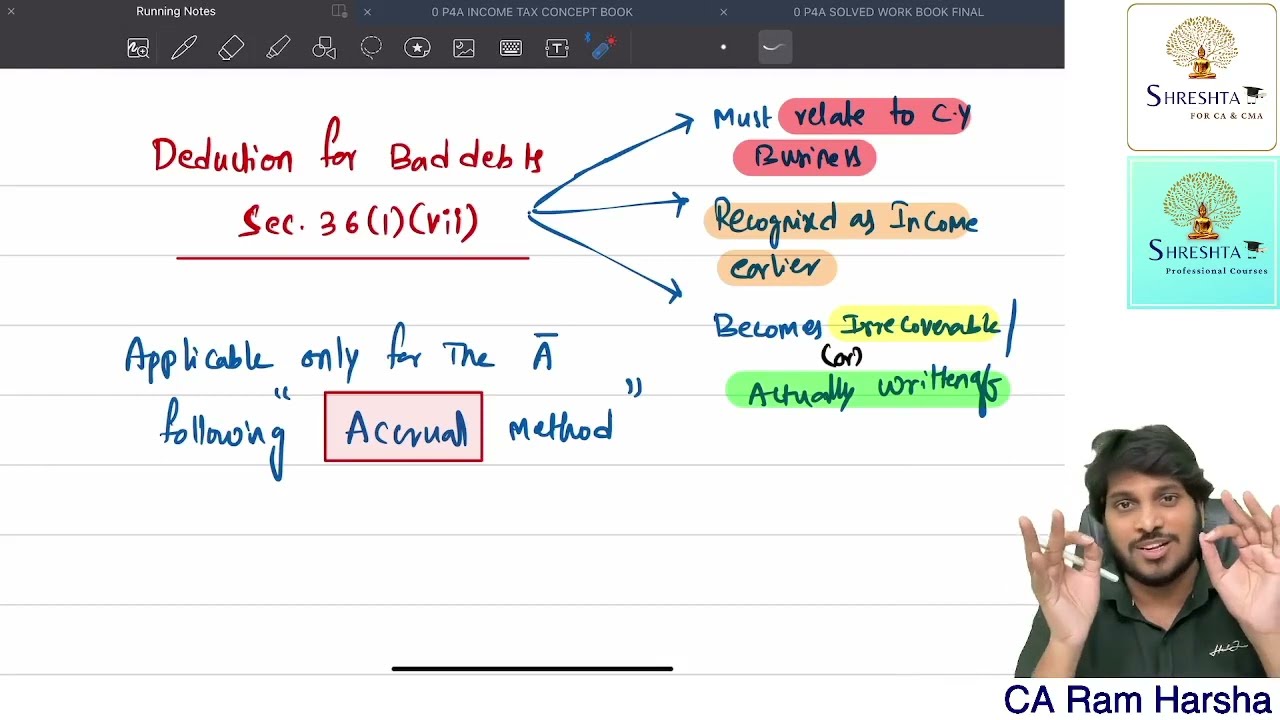 Running Notes
0 P4A INCOME TAX CONCEPT BOOK
0 P4A SOLVED WORK BOOK FINAL
Deduction for Bad debts
Sec. 36(1)(vii)
Must relate to C.Y
Business
Recognized as Income
earlier
Becomes Irrecoverable/
(or)
Actually writtenoff
Applicable only for The Ā
following "Accrual" method
SHRESHTA
FOR CA & CMA
SHRESHTA
Professional Courses
CA Ram Harsha